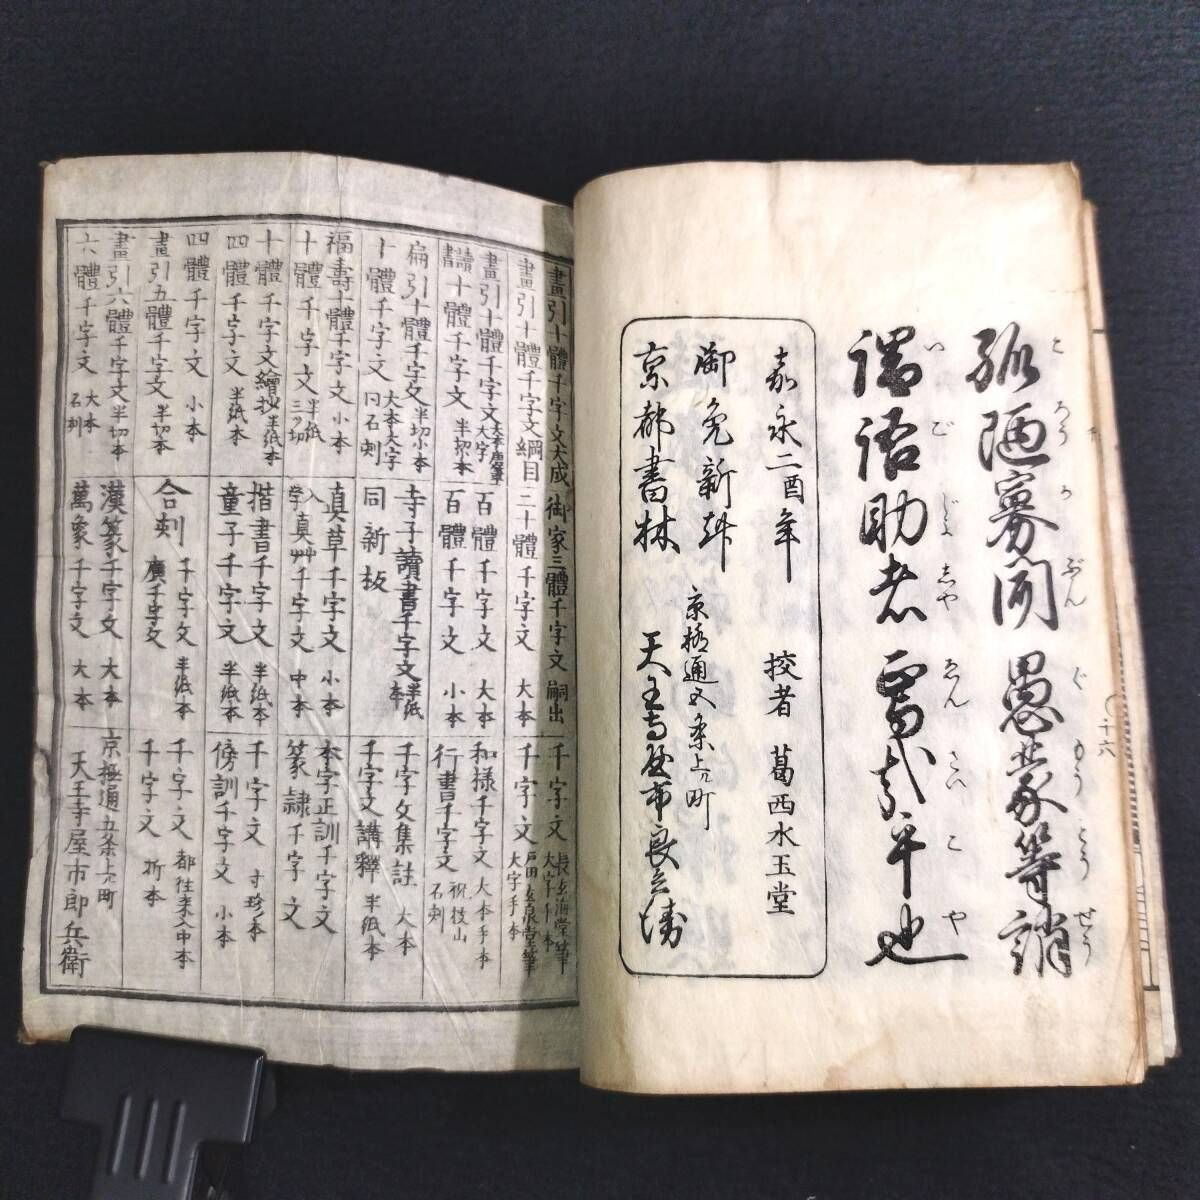 孤陋寡聞愚蒙等誚
こ ろう くわ ぶん ぐ もう とう せう
謂語助者焉哉乎也
い ご じよ しや ゑん さい こ や
嘉永二酉年 挍者 葛西水玉堂
御免新刻 京極通五条上ル町
京都書林 天王寺屋市良兵衛
十六
畫引十體千字文大成
畫引十體千字文綱目
畫引十體千字文 大字
讀書十體千字文 半切本
扁引十體千字文 半切小本
十體千字文 大本大字 同石刻
福壽十體千字文 小本
十體千字文 半紙三ツ切
十體千字文繪抄 半紙本
四體千字文 半紙本
四體千字文 小本
畫引五體千字文 半切本
畫引六體千字文 半切本
六體千字文 大本 石刻
御家三體千字文 嗣出
二十體千字文 大本
百體千字文 大本
百體千字文 小本
寺子讀書千字文 半紙本
同新板
真草千字文 小本
入学真艸千字文 中本
楷書千字文 半紙本
童子千字文 半紙本
合刻 千字文 廣千字文 半紙本
漢篆千字文 大本
萬象千字文 大本
千字文 大字千本
千字文 大字手本
和様千字文 大本手本
行書千字文 祝枝山 石刻
千字文集註 大本
千字文講釋 半紙本
本字正訓千字文
篆隷千字文
千字文 寸珍本
傍訓千字文 小本
千字文 都往来入中本
千字文 折本
京極通五条上ル町
天王寺屋市郎兵衛